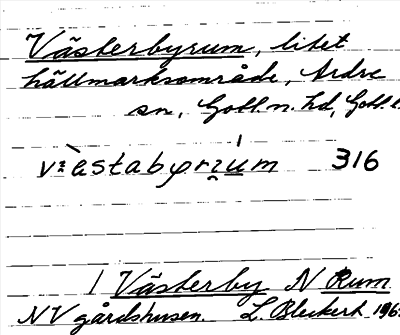 Västerbyrum, litet
hällmarksområde, Ardre
sn, Gotl. n. hd, Gotl. l.
316
/ Västerby N Rum
NV gårdshusen. L. Bleckert 196